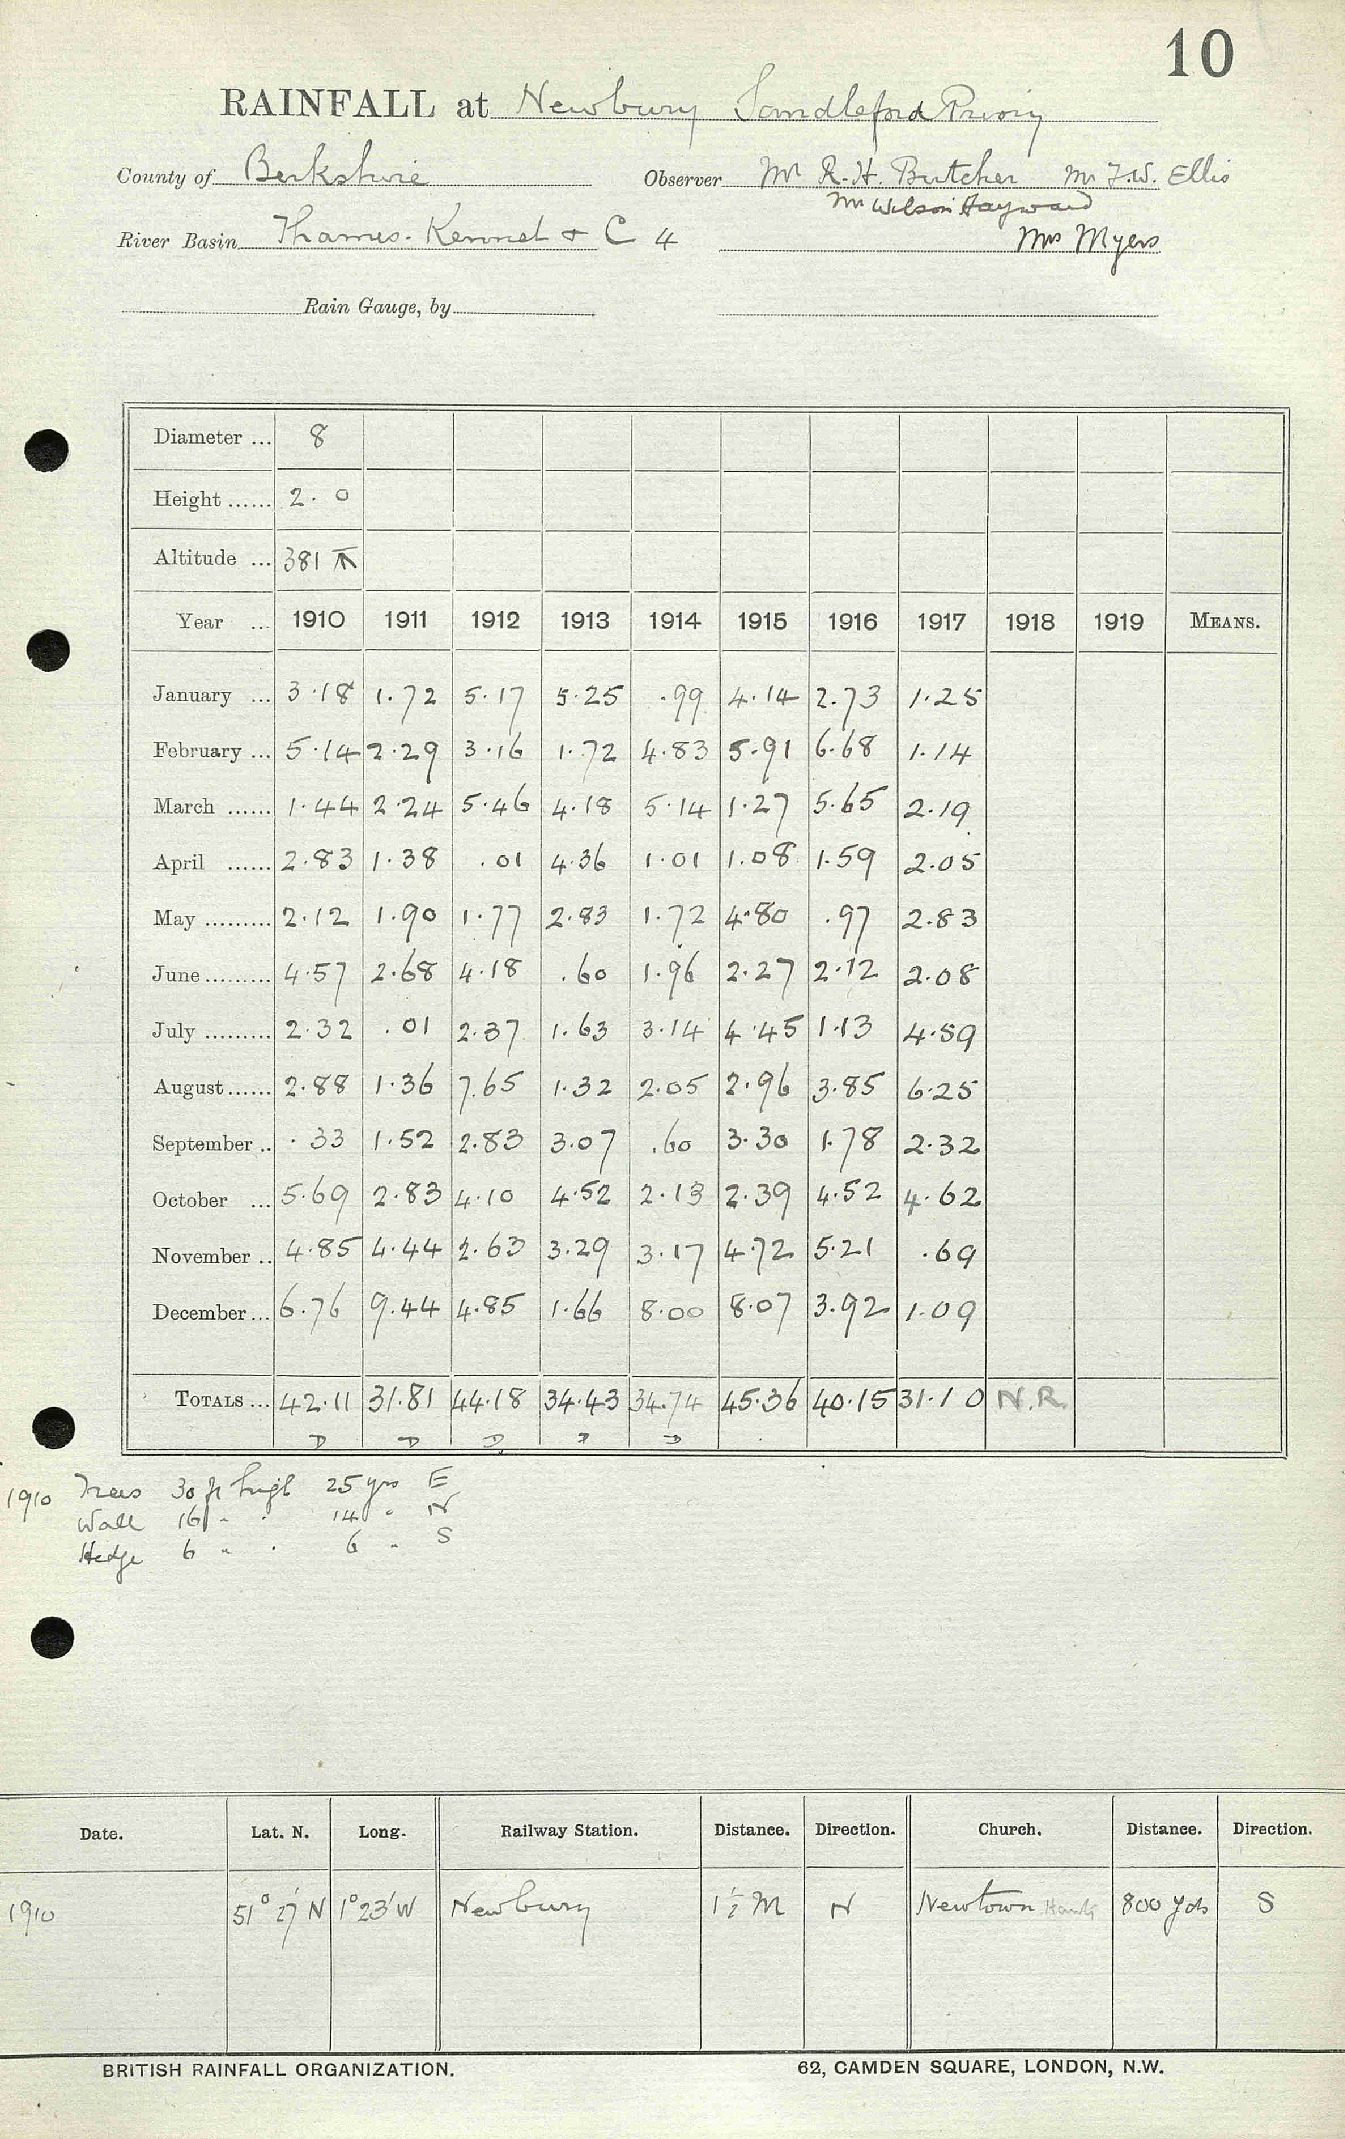 10
RAINFALL at Newbury Sandleford Priory
County of Berkshire Observer Mr R. H. Butcher Mr F.W. Ellis
Mr Wilson Hayward
River Basin Thames. Kennet & C 4 Mrs Myers
Rain Gauge, by
Diameter ... 8
Height ...... 2. 0
Altitude ... 381
Year ... 1910 1911 1912 1913 1914 1915 1916 1917 1918 1919 MEANS.
January ... 3.18 1.72 5.17 5.25 .99 4.14 2.73 1.25
February ... 5.14 2.29 3.16 1.72 4.83 5.91 6.68 1.14
March ...... 1.44 2.24 5.46 4.18 5.14 1.27 5.65 2.19
April ...... 2.83 1.38 .01 4.36 1.01 1.08 1.59 2.05
May ......... 2.12 1.90 1.77 2.83 1.72 4.80 .97 2.83
June ......... 4.57 2.68 4.18 .60 1.96 2.27 2.12 2.08
July ......... 2.32 .01 2.37 1.63 3.14 4.45 1.13 4.59
August ...... 2.88 1.36 7.65 1.32 2.05 2.96 3.85 6.25
September .. .33 1.52 2.83 3.07 .60 3.30 1.78 2.32
October ... 5.69 2.83 4.10 4.52 2.13 2.39 4.52 4.62
November .. 4.85 4.44 2.63 3.29 3.17 4.72 5.21 .69
December ... 6.76 9.44 4.85 1.66 8.00 8.07 3.92 1.09
TOTALS ... 42.11 31.81 44.18 34.43 34.74 45.36 40.15 31.10 N.R.
1910 Trees 30 ft high 25 yds E
Wall 16 " " 14 " N
Hedge 6 " " 6 " S
Date. Lat. N. Long. Railway Station. Distance. Direction. Church. Distance. Direction.
1910 51° 27' N 1° 23' W Newbury 1 1/2 M N Newtown Hants 800 yds S
BRITISH RAINFALL ORGANIZATION. 62, CAMDEN SQUARE, LONDON, N.W.